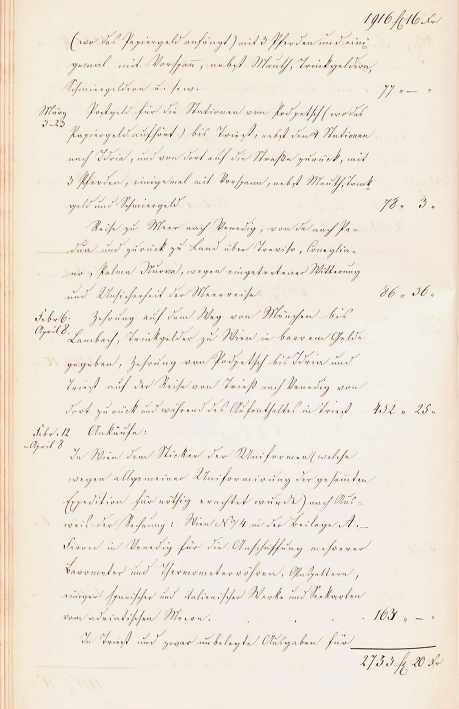 1916 f 16 Xr
(wo das Papiergeld anfängt) mit 3 Pferden und eini-
gemal mit Vorspann, nebst Mauth, Trinkgeldern,
Schmiergeldern u. s. w. 77 „ — „
März 3–23 Postgeld für die Stationen von Podpetsch (wo das
Papiergeld aufhört) bis Triest, nebst den 4 Stationen
nach Idria, und von dort auf die Straße zurück, mit
3 Pferden, einigemal mit Vorspann, nebst Mauth, Trink-
geld und Schmiergeld 78 „ 3 „
Reise zu Meer nach Venedig, von da nach Pa-
dua und zurück zu Land über Treviso, Coneglia-
no, Palma Nuova, wegen eingetretener Witterung
und Unsicherheit der Meerreise 86 „ 36 „
Febr. 6. April 8. Zehrung auf dem Weg von München bis
Lambach, Trinkgelder zu Wien in barrem Gelde
gegeben, Zehrung von Podpetsch bis Idria und
Triest auf der Reise von Triest nach Venedig von
dort zurück und während des Aufenthaltes in Triest 432 „ 25 „
Febr. 12 – April 8 Ankäufe.
In Wien dem Sticker der Uniformen (welche
wegen allgemeiner Uniformirung der gesamten
Expedition für nöthig erachtet wurde) nach Aus-
weis der Rechnung: Wien No 3/4 in der Beilage A. —
Ferner in Venedig für die Anschaffung mehrerer
Barometer und Thermometerröhren,
einiger spanischer und italienischer Werke und Seekarten
vom adriatischen Meere. 163 „ — „
In Triest und zwar unbelegte Ausgaben für
2753 f 20 Xr